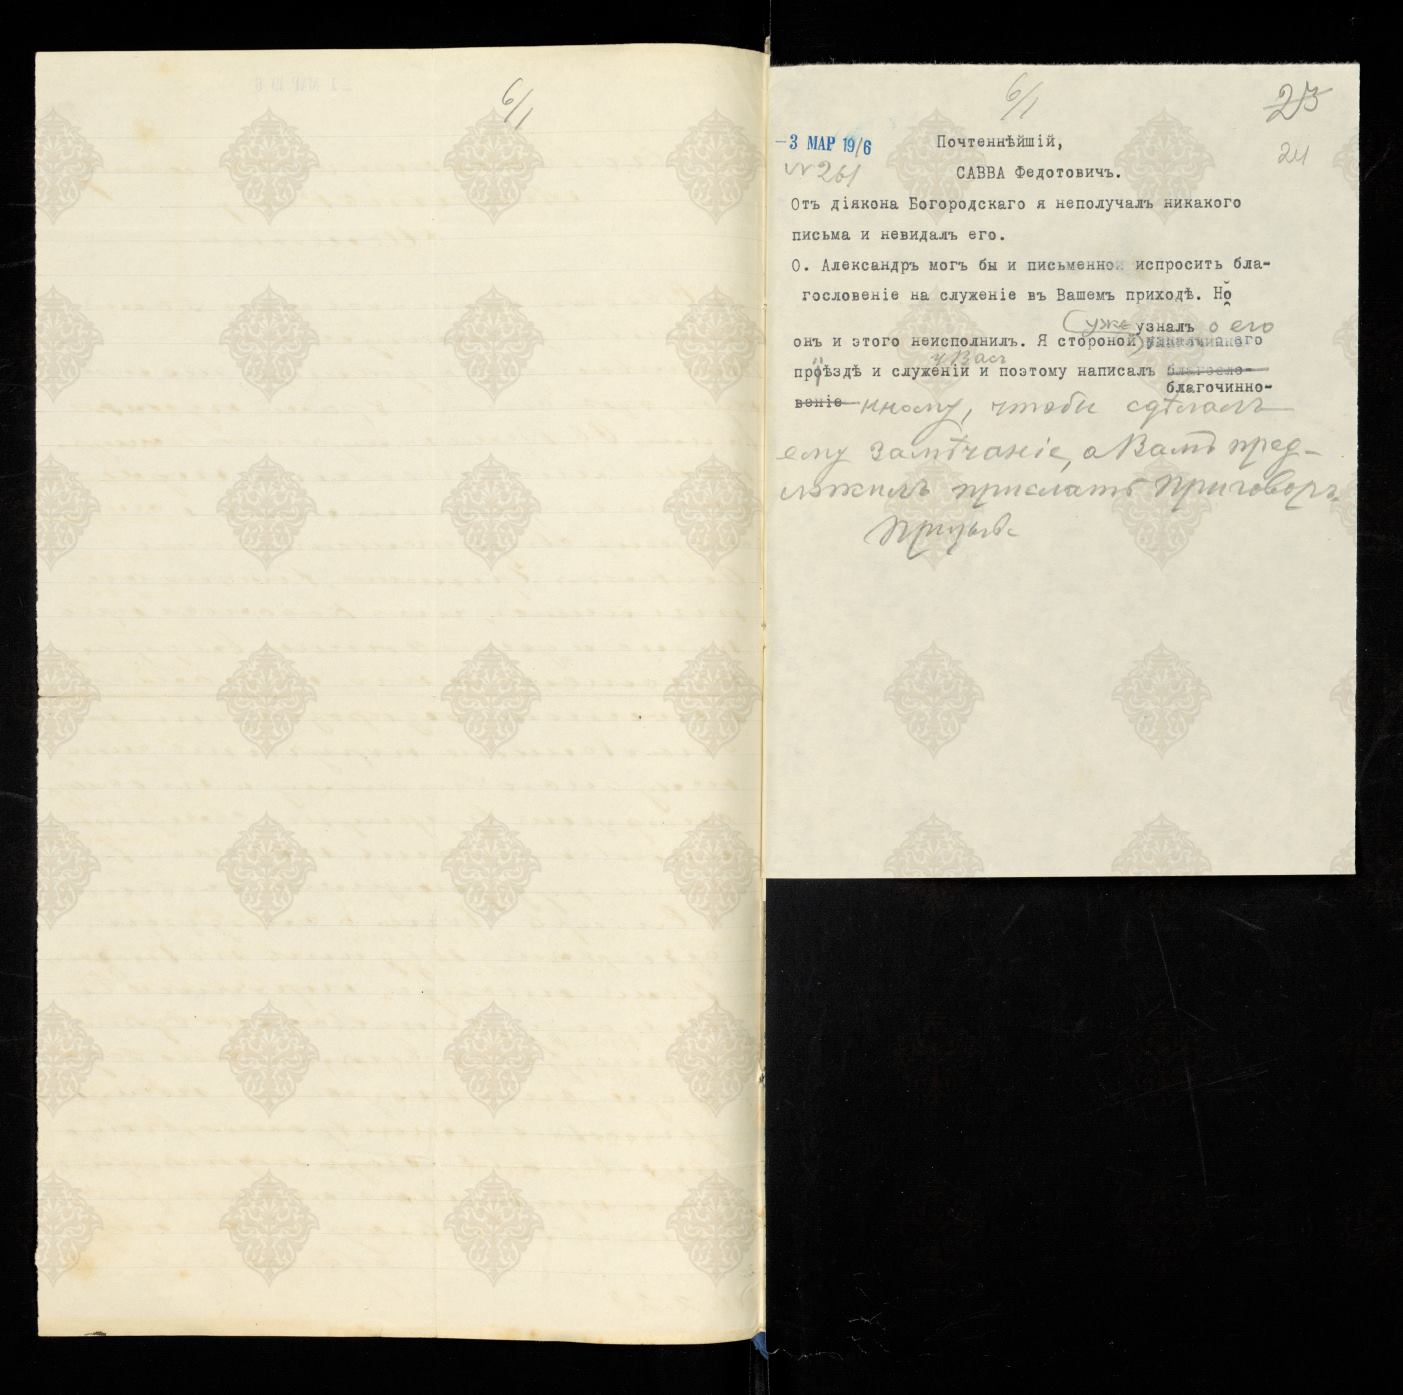 6/1
6/1
25
24
-3 МАР 19/6
№ 261
Почтеннѣйшій,
САВВА Федотовичъ.
Отъ діякона Богородскаго я неполучалъ никакого
письма и невидалъ его.
О. Александръ могъ бы и письменно испросить бла-
гословеніе на служеніе въ Вашемъ приходѣ. Но
уже узналъ о его
онъ и этого неисполнилъ. Я стороной
у Васъ
проѣздѣ и служеніи и поэтому написалъ благосло-
благочинно-
веніе нному, чтобы сдѣлалъ
ему замѣчаніе, а Вамъ пред-
ложилъ прислать приговоръ.